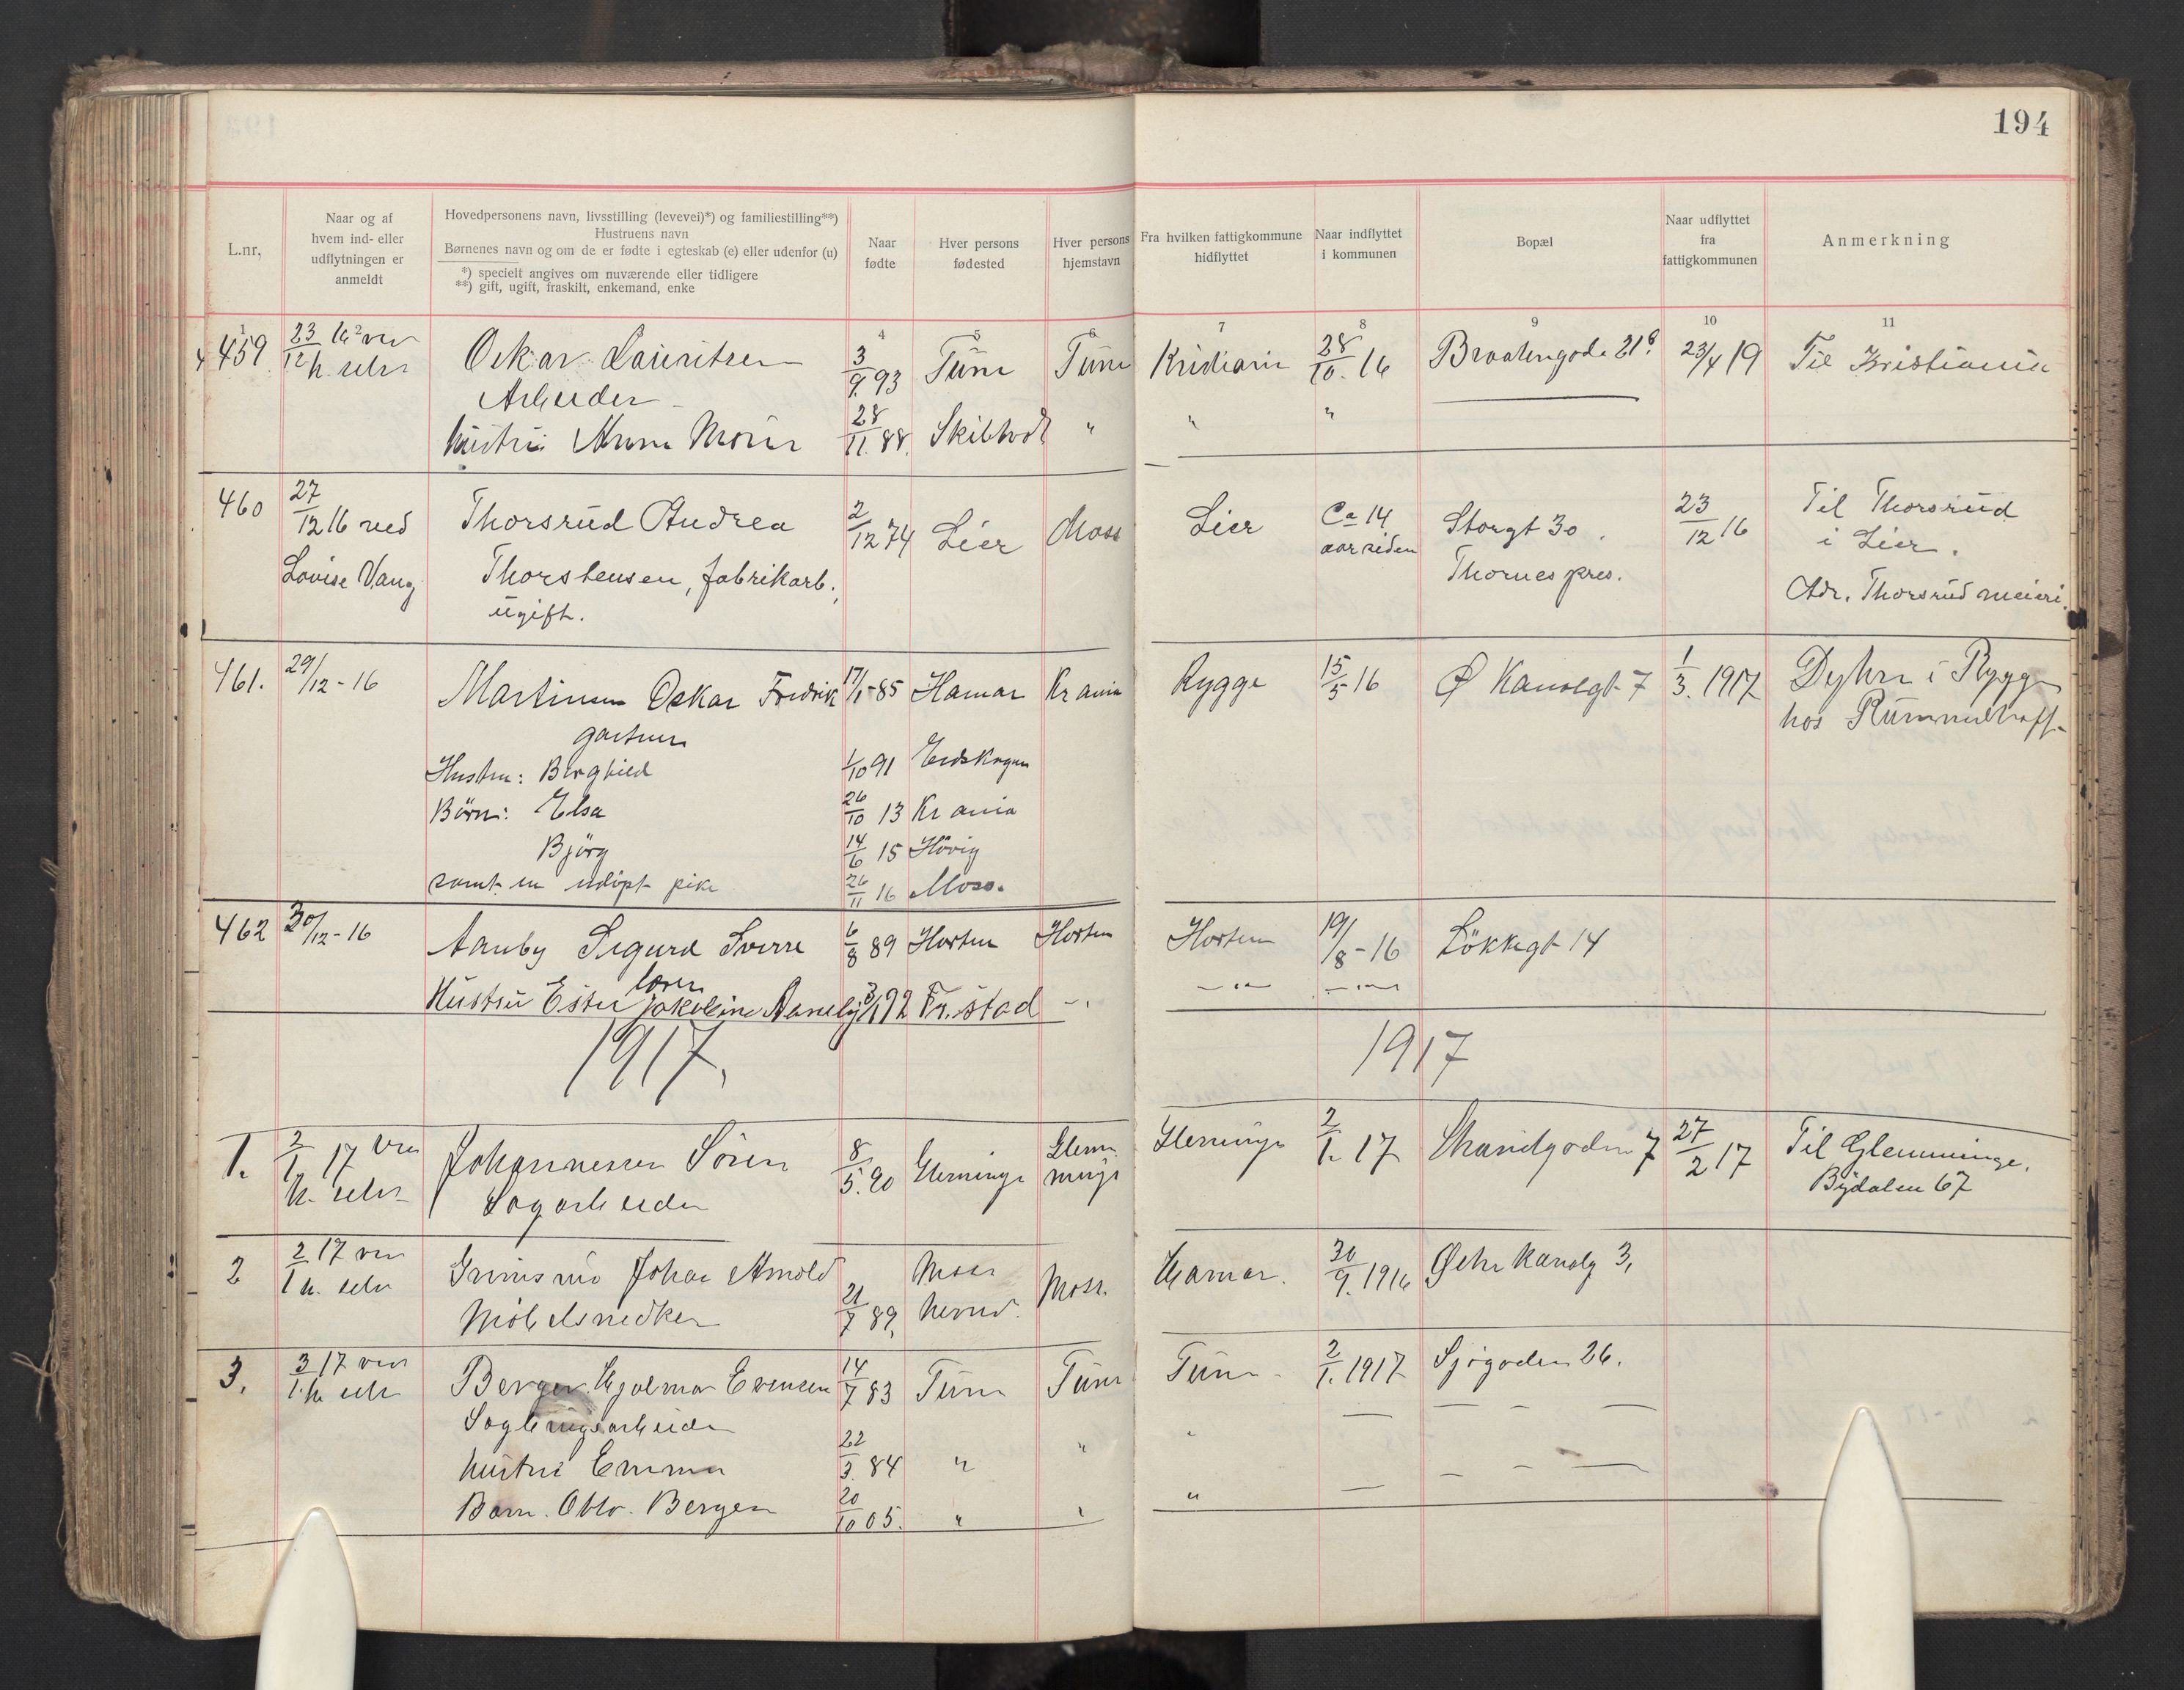 194
L.nr,
Naar og af hvem ind- eller udflytningen er anmeldt
Hovedpersonens navn, livsstilling (levevei)*) og familiestilling**)
Hustruens navn
Børnenes navn og om de er fødte i egteskab (e) eller udenfor (u)
*) specielt angives om nuværende eller tidligere
**) gift, ugift, fraskilt, enkemand, enke
Naar fødte
Hver persons fødested
Hver persons hjemstavn
Fra hvilken fattigkommune hidflyttet
Naar indflyttet i kommunen
Bopæl
Naar udflyttet fra fattigkommunen
Anmerkning
4 5 6 7 8 9 10 11
459 23/12 16 ver Oskar Lauritsen 3/9 93 Tune Tune Kristiania 28/10. 16 Braatengade 21 23/4 19 Til Kristiania
h. selv Arbeider
hustru Anna Marie 28/11. 88. Skibtvedt " " "
460 27/12 16 ved Thorsrud Andrea 2/12 74 Lier Moss Lier Ca 14 aar siden Storgt 30. 23/12 16 Til Thorsrud i Lier.
Lovise Vang Thorstensen, fabrikarb., Thornes pres. Adr. Thorsrud meieri.
ugift.
461. 29/12-16 Martinsen Oskar Fredrik 17/1-85 Hamar Kr ania Rygge 15/5 16 Ø Kanalgt 7 1/3. 1917 Dyhre i Rygge
gartner hos Rummelhoff
Hustru: Borghild 1/10 91 Eidskogen
Børn: Elsa 26/10 13 Kr ania
Bjørg 14/6 15 Høvig
samt en udöpt pike 26/11 16 Moss.
462 30/12-16 Aanby Sigurd Sverre 6/8 89 Horten Horten Horten 19/8-16 Løkkegt 14
Hustru Ester Jakobine Aaneby 3/1 92 Fr.stad
1917. 1917
1. 2/1. 17 ver Johannesen Søren 8/5. 90 Glemminge Glemminge Glemminge 2/1. 17 Strandgaden 7 27/2 17 Til Glemminge.
h. selv Sagarbeider Bydalen 67
2 2/1 17 ver Johan Arnold 21/7 89, Moss Moss. Hamar. 30/9. 1916 Østre Kanalg 3,
h. selv Møbelsnedker
3. 3/1. 17 ver Berger Hjalmar Evensen 14/7 83 Tune Tune Tune 2/1. 1917 Sjøgaden 26.
h selv
hustru Emma 22/3. 84 " "
Barn. Otto. Bergen 20/10 05. " " "